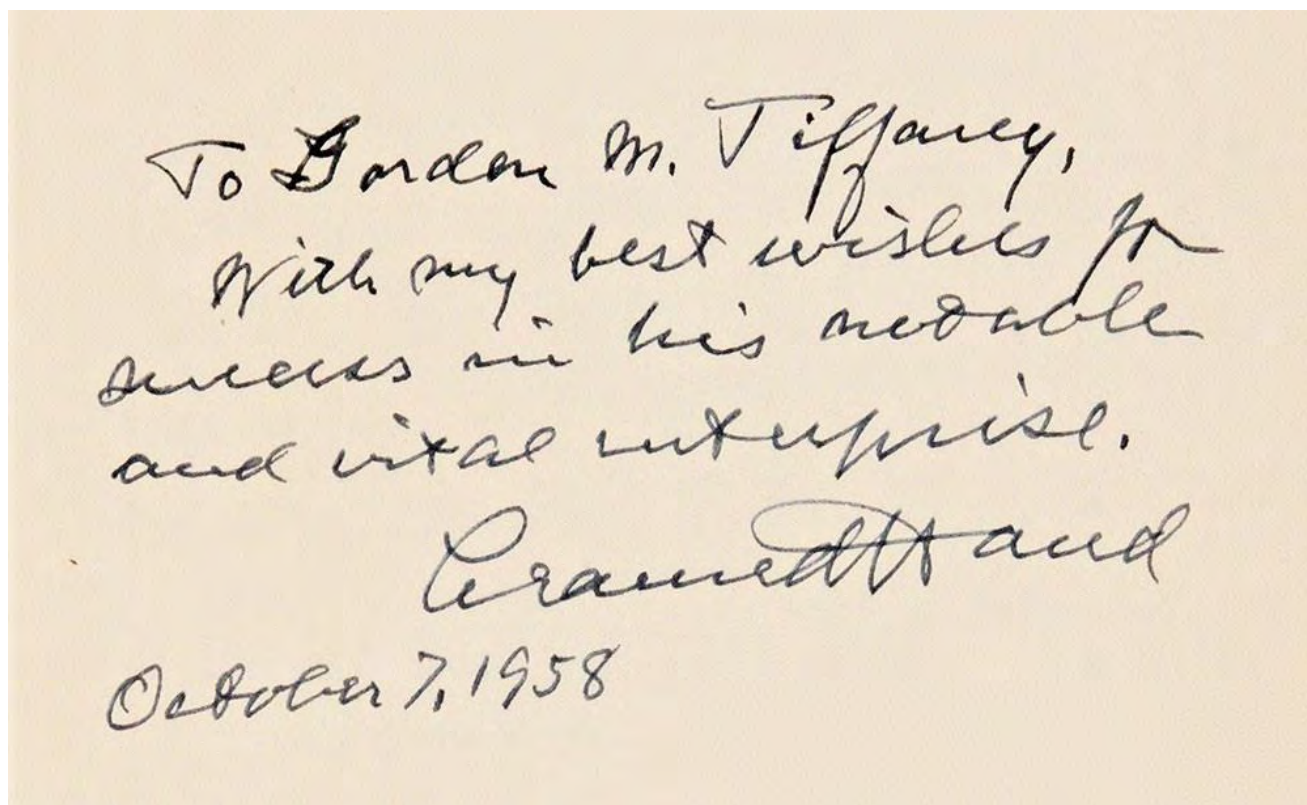 To Gordon M. Tiffany,
With my best wishes for
success in his notable
and vital enterprise.
Learned Hand
October 7, 1958